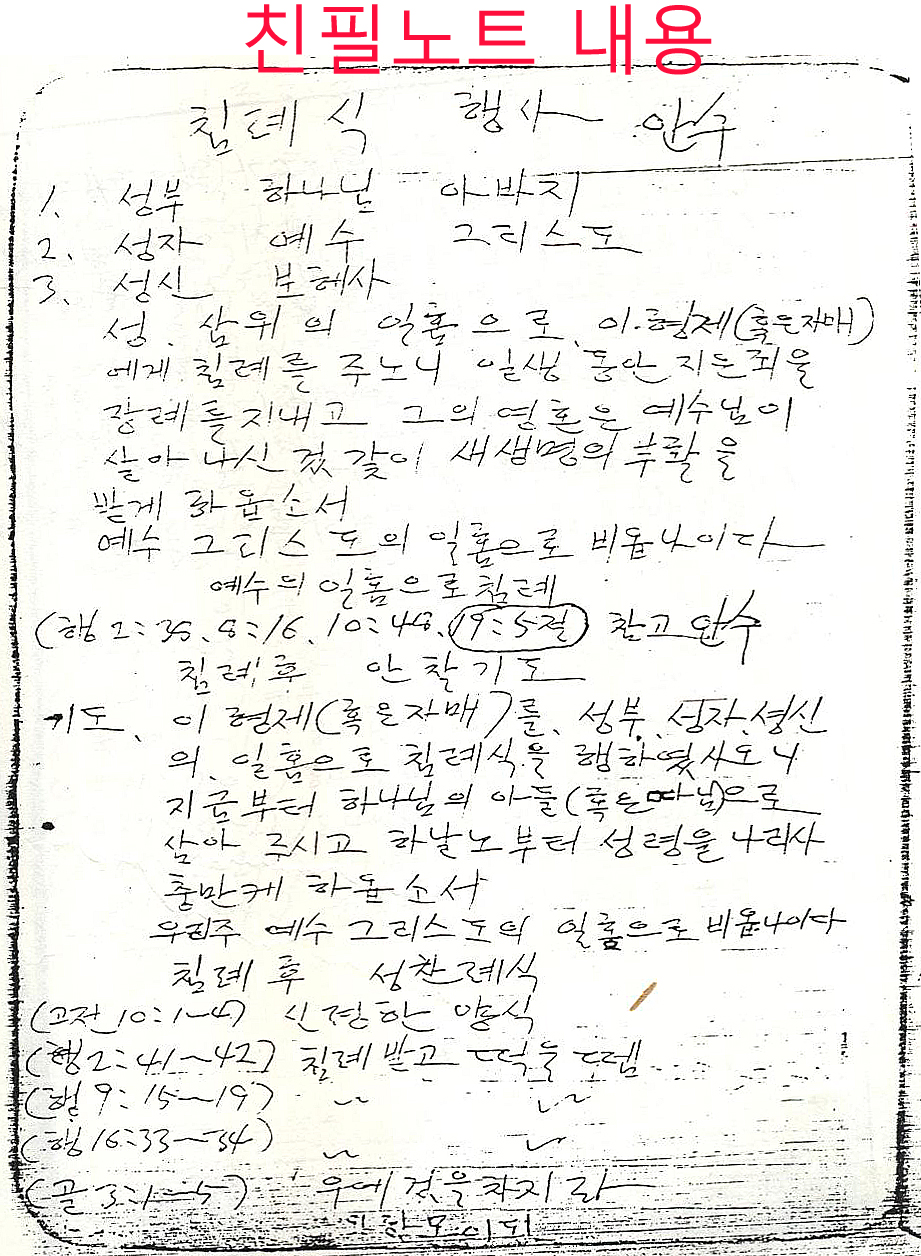 친필노트 내용
침례식 행사 안수
1. 성부 하나님 아바지
2. 성자 예수 그리스도
3. 성신 보혜사
성. 삼위의 일홈으로, 이.형제(혹은자매)
에게 침례를 주노니 일생동안 지은죄을
장례를지내고 그의 영혼은 예수님이
살아나신것 갗이 새생명의 부활을
받게 하옵소서
예수 그리스도의 일홈으로 비옵나이다
예수의 일홈으로침례
(행 2:38, 8:16, 10:48, 19:5절) 참고 안수
침례후 안찰기도
기도、 이 형제(혹은자매)를, 성부, 성자, 성신
의, 일홈으로 침례식을 행하엿사오니
지금부터 하나님의 아들(혹은따님)으로
삼아 주시고 하날노부터 성령을 나리사
충만케 하옵소서
우리주 예수 그리스도의 일홈으로 비옵나이다
침례 후 성찬례식
(고전 10:1~4) 신령한 양식
(행2:41~42) 침례받고 떡을 뗌
(행 9:15~19) 〃 〃
(행16:33~34) 〃 〃
(골 3:1~5) 우에것을차지라